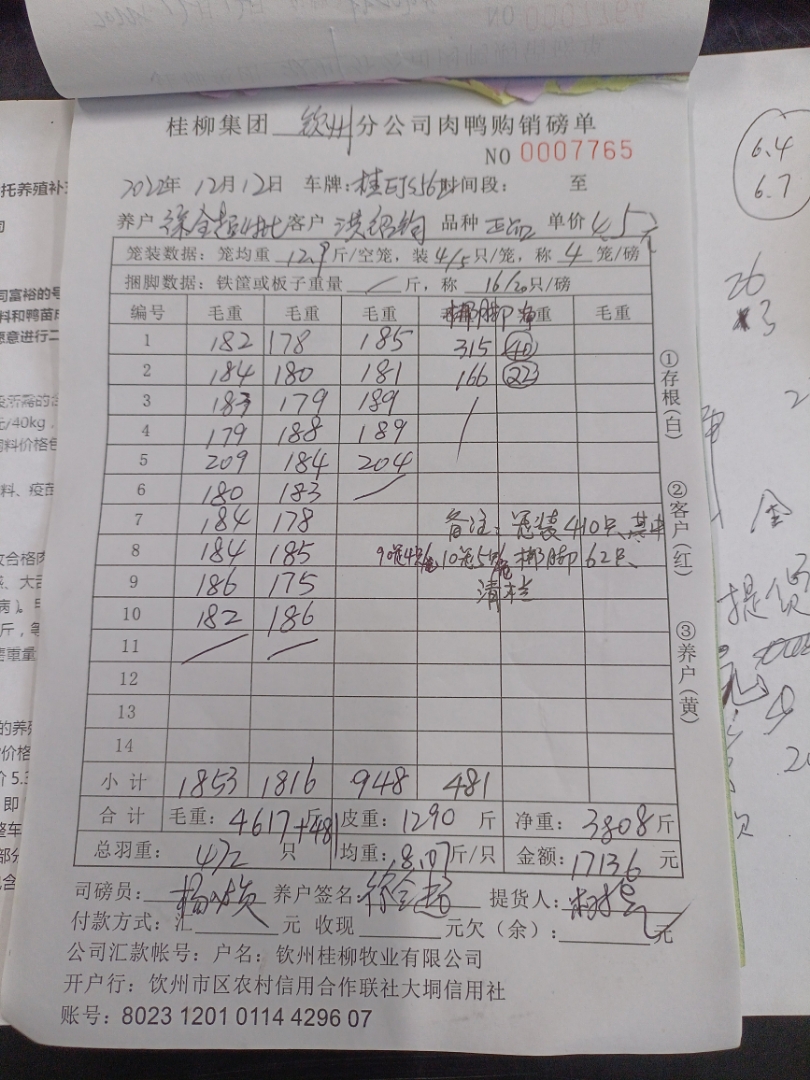 桂柳集团 钦州 分公司肉鸭购销磅单
NO 0007765
2022年 12月12日 车牌: 时间段: 至
养户 徐全超 客户 洪绍钩 品种 正品 单价 4.5元
笼装数据: 笼均重 12.9 斤/空笼, 装 4/5 只/笼, 称 4 笼/磅
捆脚数据: 铁筐或板子重量 / 斤, 称 16/20 只/磅
编号 毛重 毛重 毛重 重 毛重
1 182 178 185 315 40
2 184 180 181 166 22
3 183 179 189
4 179 188 189
5 209 184 204
6 180 183
7 184 178 备注: 笼装410只、其中
8 184 185 90笼4只 10笼5只 绑脚62只、
9 186 175 清栏
10 182 186
11
12
13
14
小计 1853 1816 948 481
合计 毛重: 4617斤+481 皮重: 1290 斤 净重: 3808 斤
总羽重: 472 只 均重: 8.07 斤/只 金额: 17136 元
司磅员: 养户签名: 徐全超 提货人:
付款方式: 汇 元 收现 元欠(余): 元
公司汇款帐号: 户名: 钦州桂柳牧业有限公司
开户行: 钦州市区农村信用合作联社大垌信用社
账号: 8023 1201 0114 4296 07
①存根(白)
②客户(红)
③养户(黄)
托养殖补
料和鸭苗
愿意进行二
元/40kg,
饲料价格
料、疫苗
6.4
6.7
26
3
金
提货